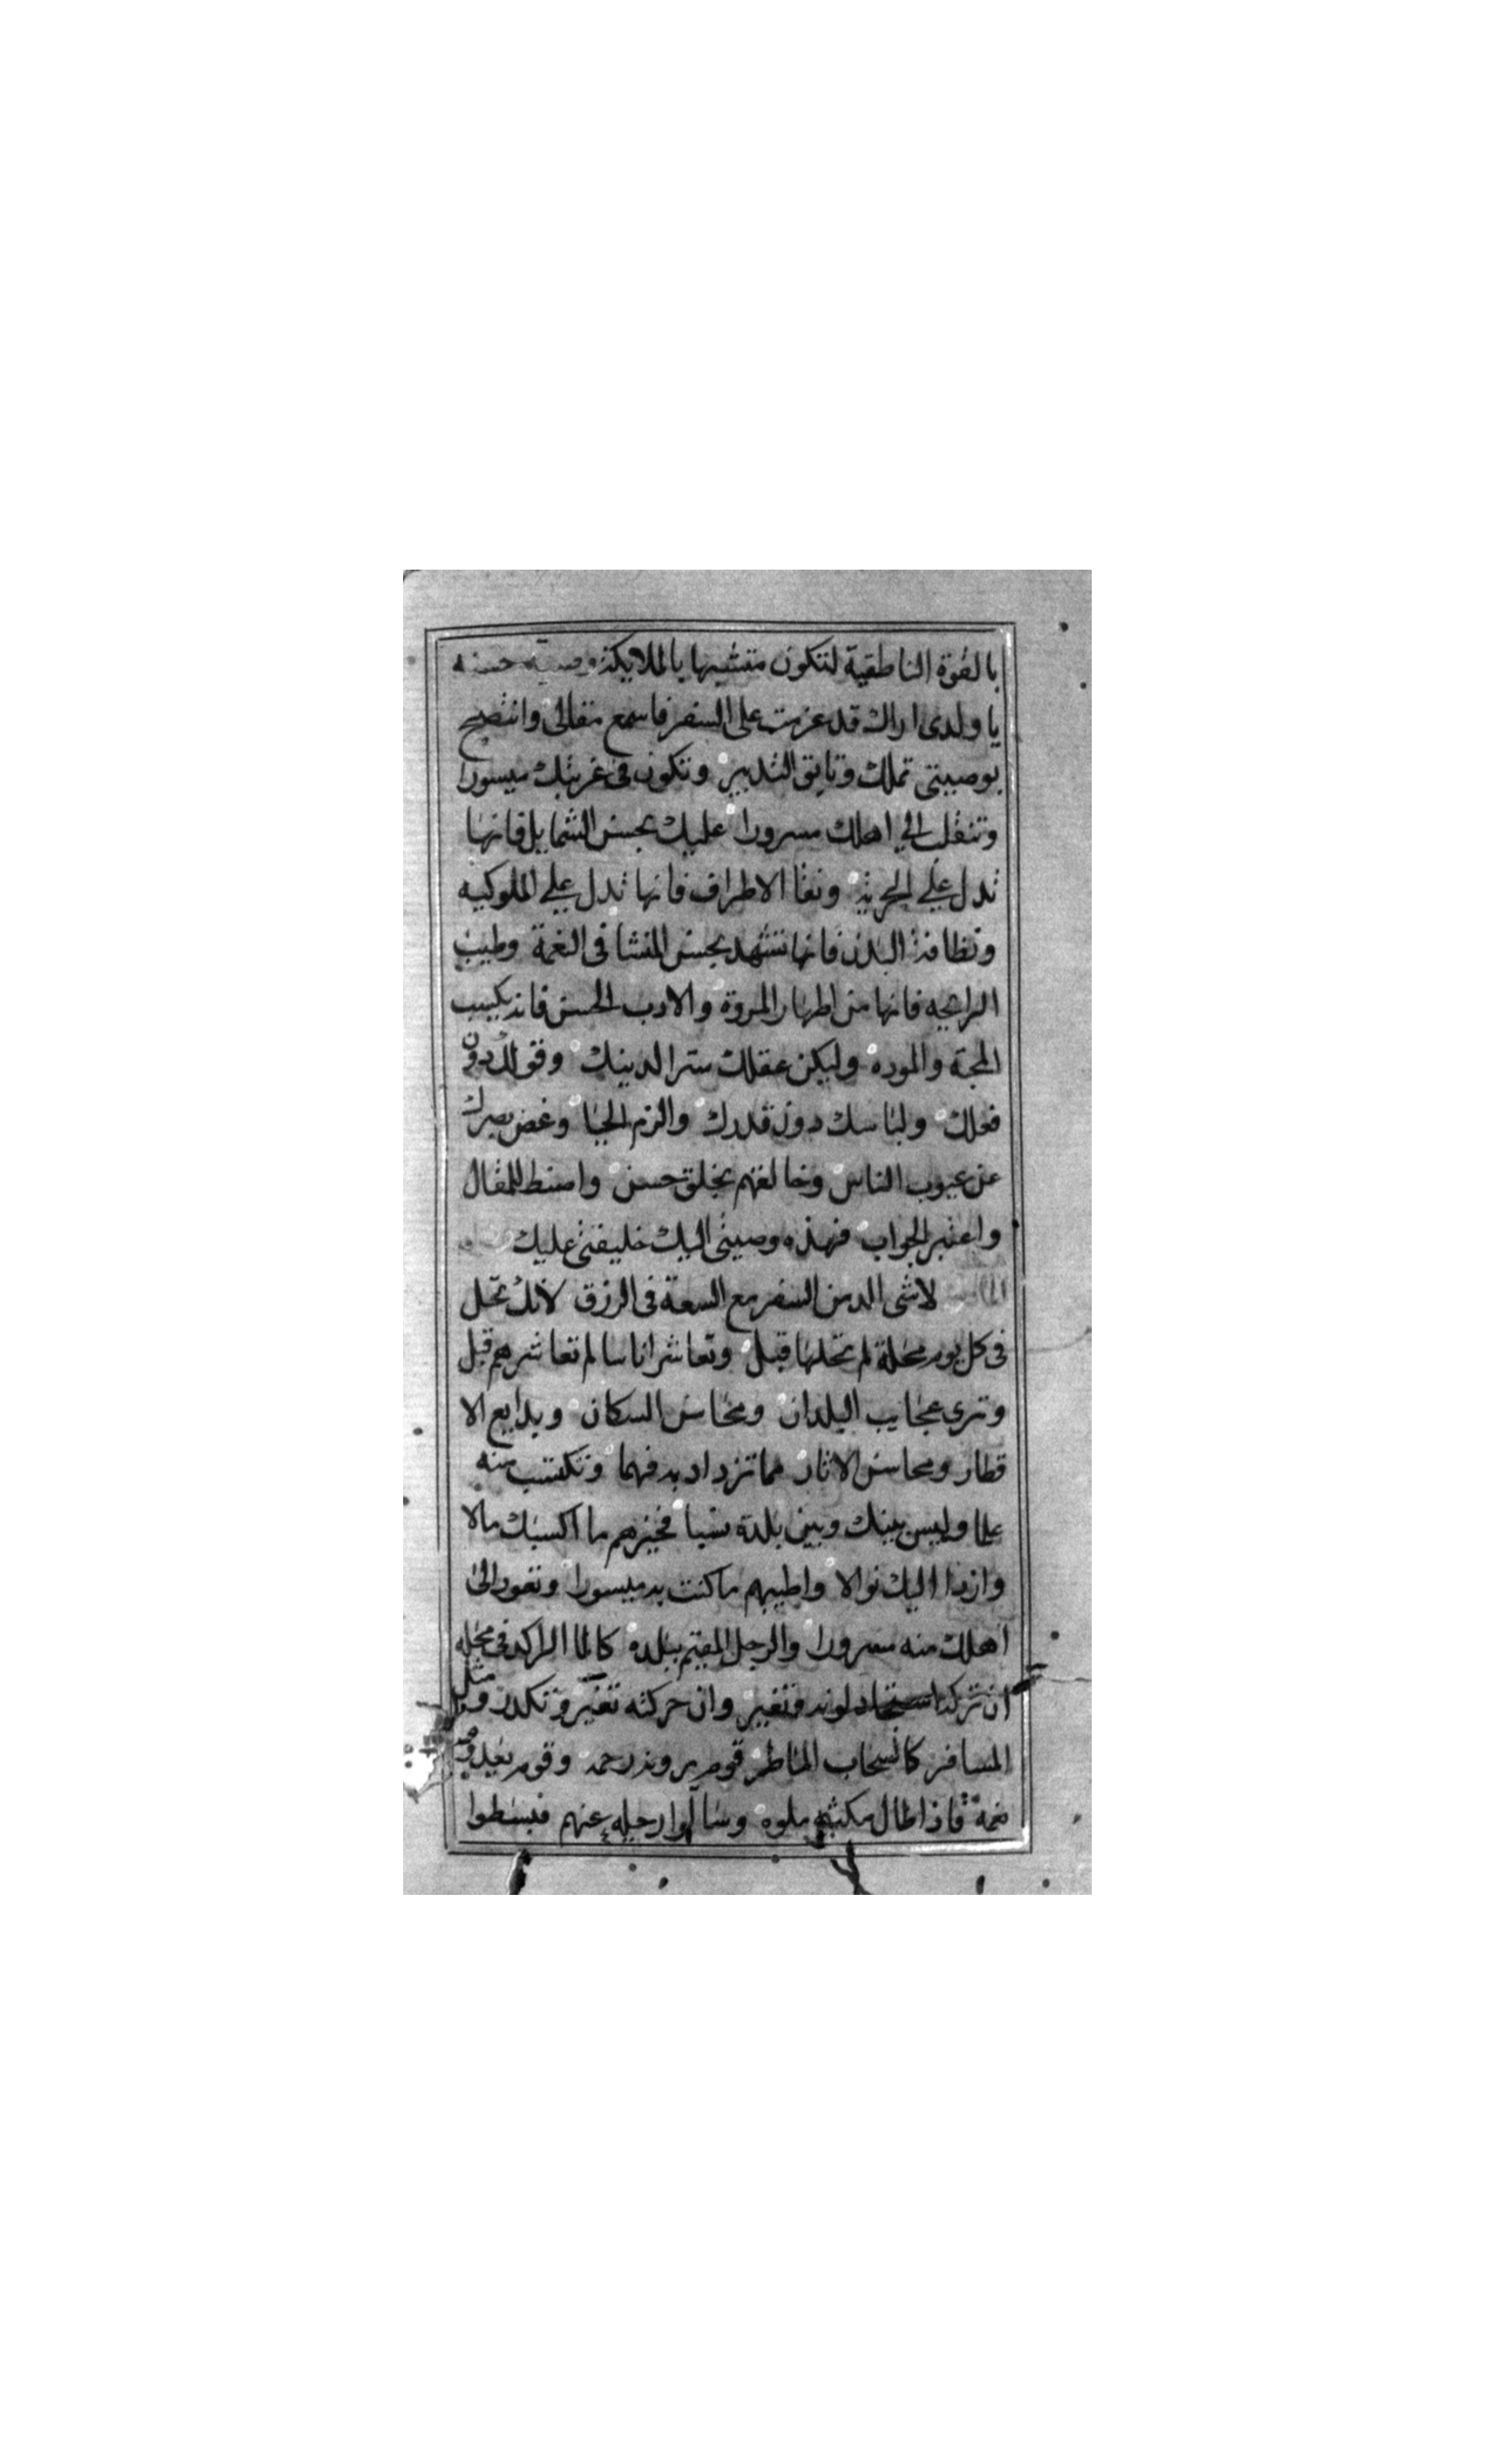 بالقوة الناطقية لتكون متشبها بالملايكة وصية حسنه
يا ولدى اراك قد عزمت على السفر فاسمع مقالى وانتصح
بوصيتى تملك وثايق التدبير وتكون فى غربتك ميسورا
وتنقلب الى اهلك مسرورا عليك بحسن الشمايل فانها
تدل على الحرية ونقا الاطراف فانها تدل على الملوكيه
ونظافة البدن فانها تشهد بحسن المنشا فى النعمة وطيب
الرايحه فانها من اظهار المروة والادب الحسن فانه يكسب
المحبة والموده وليكن عقلك سترا لدينك وقولك دون
فعلك ولباسك دون قدرك والزم الحيا وغض بصرك
عن عيوب الناس وخالقهم بخلق حسن واضبط المقال
واعتبر الجواب فهذه وصيتى اليك خليفتى عليك
لا شى الذ من السفر مع السعة فى الرزق لانك تحل
فى كل يوم محلة لم تحلها قبل وتعاشر اناسا لم تعاشرهم قبل
وترى عجايب البلدان ومحاسن السكان وبدايع الا
قطار ومحاسن الاثار مما تزداد به فهما وتكتسب منه
علما وليس بينك وبين بلدة نسبا فخيرهم ما اكسبك مالا
وازدا اليك نوالا واطيبهم ما كنت به ميسورا وتعود الى
اهلك منه مسرورا والرجل المقيم ببلده كالما الراكد فى محله
ان تركته استحاد لونه فتغير وان حركته تغير وتكدر ومثل
المسافر كالسحاب الماطر قوم يرونه رحمه وقوم يعدونه
نعمة فاذا طال مكثه ملوه وسالوا رحيله عنهم فبسطوا